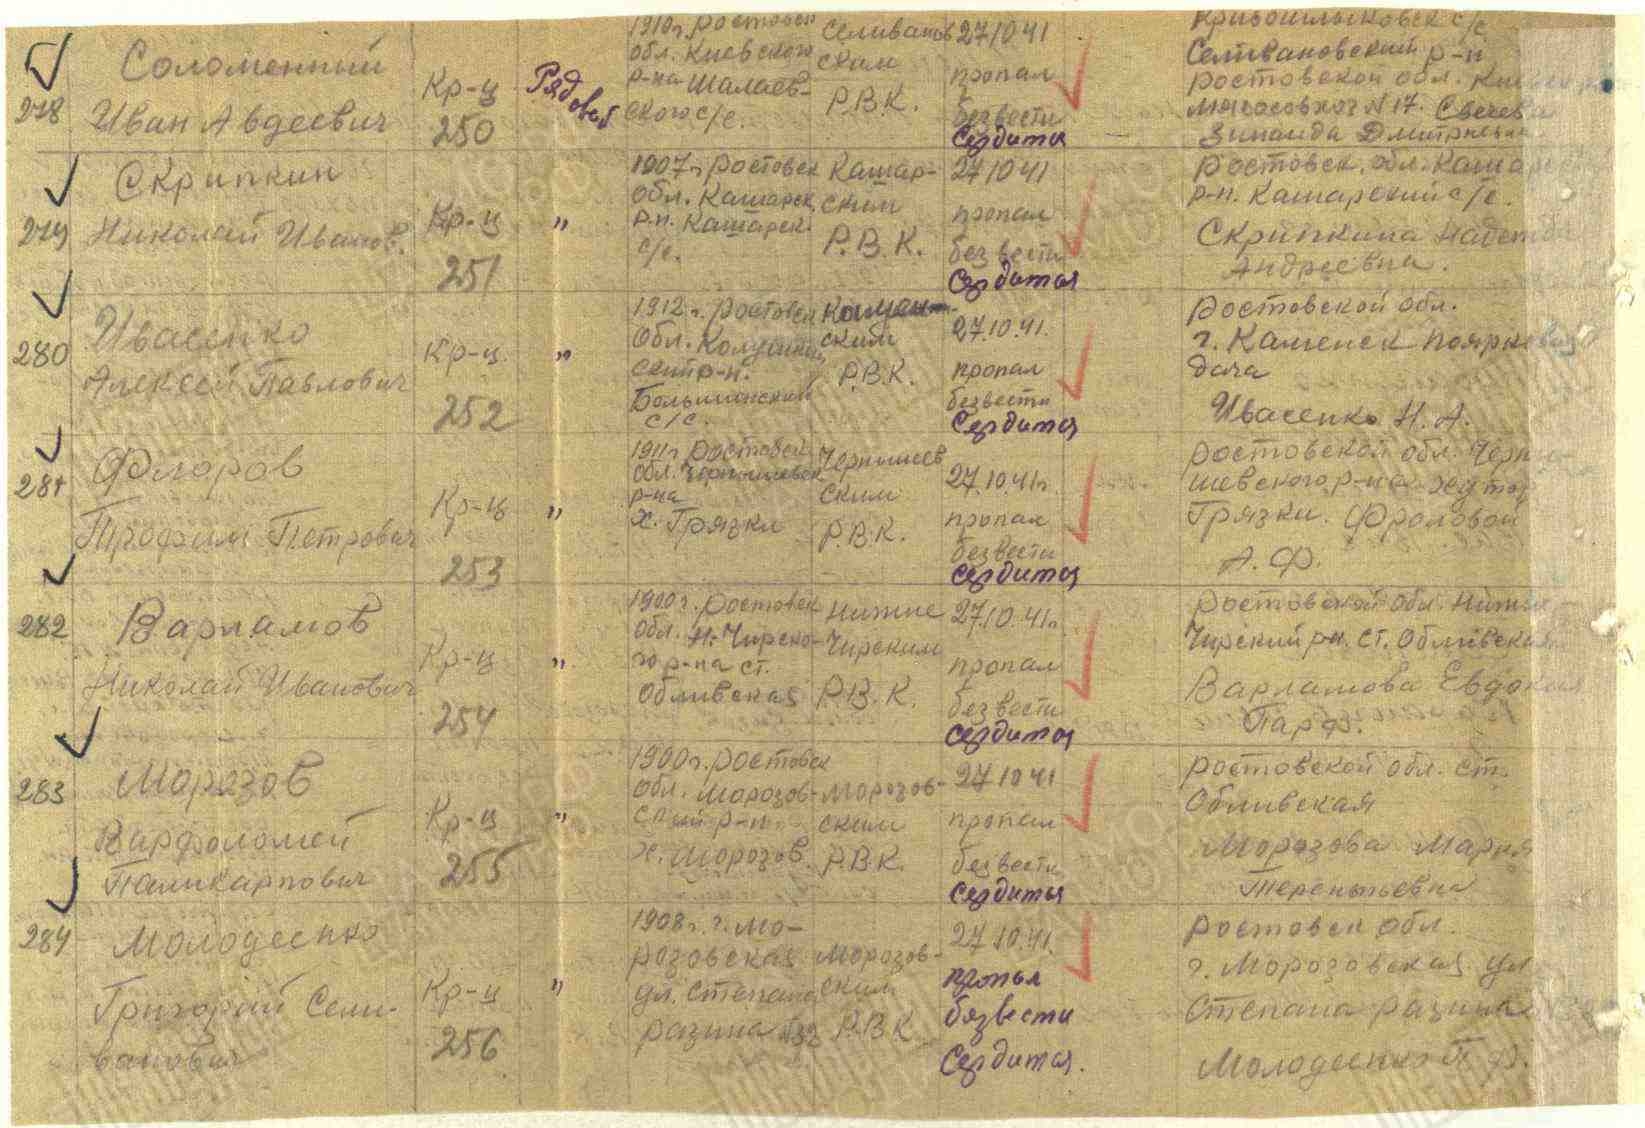 278
Соломенный
Иван Авдеевич
Кр-ц
250
Рядовой
1910г. Ростовск
обл. Киевского
р-на Шалаев-
ского с/с.
Селиванов
ским
Р.В.К.
27/10 41
пропал
безвести
Сердится
Селивановский р-н
Ростовской обл.
№17. Свечева
Зинаида Дмитриевна
279
Скрипкин
Николай Иванов.
Кр-ц
251
"
1907г Ростовск
обл. Кашарск
р.н. Кашарск
с/с.
Кашар-
ским
Р.В.К.
27/10 41
пропал
без вести
Сердится
Ростовск. обл. Кашар
р-н. Кашарский с/с.
Скрипкина Надежда
Андреевна
280
Ивасенко
Алексей Павлович
Кр-ц
252
"
1912 г. Ростовск
Обл.
р-н.
Большинский
с/с.
ским
Р.В.К.
27.10.41.
пропал
безвести
Сердится
Ростовской обл.
г. Каменск
дача
Ивасенко Н. А.
281
Флоров
Трофим Петрович
Кр-ц
253
"
1911г Ростовск
обл. Чернышевск
р-на
х. Грязки
Чернышев
ским
Р.В.К.
27.10.41г.
пропал
безвести
Сердится
Ростовской обл. Черны
шевского р-на хутор
Грязки. Фроловой
А. Ф.
282
Варламов
Николай Иванович
Кр-ц
254
"
1900г. Ростовск
обл. Н. Чирско-
го р-на ст.
Обливская
Нижне
Чирским
Р.В.К.
27.10.41г.
пропал
безвести
Сердится
Ростовской обл. Нижне
Чирский р-н. ст. Обливская
Варламова Евдокия
Парф.
283
Морозов
Варфоломей
Паликарпович
Кр-ц
255
"
1900г. Ростовск
обл. Морозов-
ский р-н.
х. Морозов.
Морозов-
ским
Р.В.К.
27 10 41
пропал
безвести
Сердится
Ростовской обл. ст.
Обливская
Морозова Мария
Терентьевна
284
Молодеснко
Григорий Сели-
ванович
Кр-ц
256
"
1908г. г. Мо-
розовская
ул. Степана
разина №32
Морозов-
ским
Р.В.К
27 10.41.
пропал
бязвести
Сердится.
Ростовск обл.
г. Морозовская ул
Степана разина
Молодеснко П. Ф.